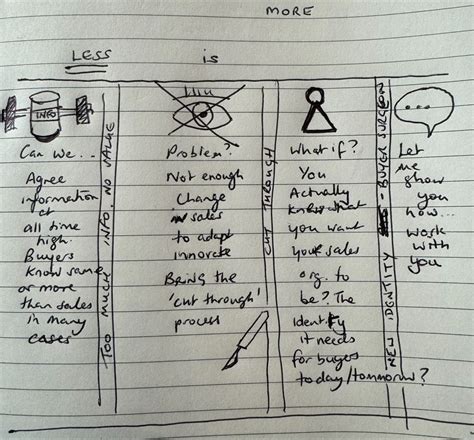 MORE
LESS is
INFO
Can we..
Agree
information
at
all time
high.
Buyers
know same
or more
than sales
in many
cases
TOO MUCH INFO. NO VALUE
Problem?
Not enough
Change
in sales
to adapt
innovate
Bring the
'cut through'
process
CUT THROUGH
What if?
You
Actually
knew what
you want
your sales
org. to
be? The
Identity
it needs
for buyers
today/tommorow?
NEW IDENTITY - BUYER SURGEON
...
Let
me
show
you
how...
work
with
you